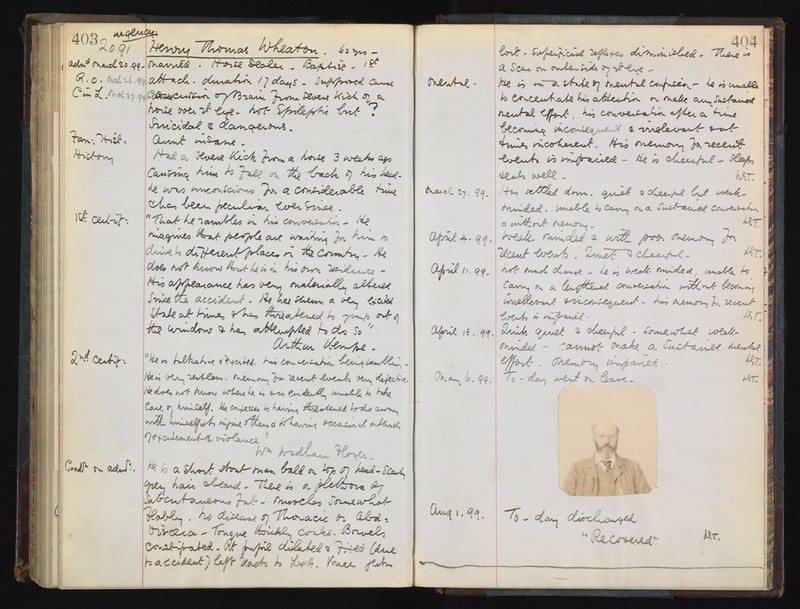 403
urgency
2091 Henry Thomas Wheaton. 62 yrs -
admd March 20.99. married. Horse Dealer. Baptist - 1st
R.O. Mch 26.99 attack. duration 17 days - Supposed cause
C in L. Mch 27.99 Concussion of Brain from severe kick of a
horse over rt eye. not Epileptic but ?
Suicidal & dangerous.
Fam: Hist: Aunt insane.
History Had a severe kick from a horse 3 weeks ago
causing him to fall on the back of his head.
he was unconscious for a considerable time
& has been peculiar ever since.
1st Certif: "That he rambles in his conversation - He
imagines that people are waiting for him to
drive to different places in the Country. He
does not know that he is in his own residence -
His appearance has very materially altered
since the accident. He has shewn a very excited
state at times & has threatened to jump out of
the window & has attempted to do so"
Arthur Kempe.
2nd Certif: "He is talkative & excited. his conversation being rambling.
He is very restless. memory for recent events very defective.
He does not know where he is & is evidently unable to take
care of himself. He confesses to having threatened to do away
with himself & to injure others & to having occasional outbreaks
of excitement & violence"
Wm Wadham Floyer.
Condn on admn: He is a short stout man bald on top of head - Scanty
grey hair & beard - There is a plethora of
subcutaneous fat - muscles somewhat
flabby. No disease of Thoracic or Abd=
Viscera - Tongue thickly coated. Bowels
constipated. Rt pupil dilated & fixed (due
to accident) left reacts to Light. Knee jerks
404
lost. Superficial reflexes diminished. There is
a scar on outer side of rt eye -
Mental. He is in a state of mental confusion - he is unable
to concentrate his attention or make any sustained
mental effort. his conversation after a time
becoming inconsequent & irrelevant & at
times incoherent. His memory for recent
events is impaired - He is cheerful - sleeps
& eats well -
March 27. 99. Has settled down. quiet & cheerful but weak-
minded. unable to carry on a sustained conversation
& without memory.
April 4. 99. Weak minded & with poor memory for
recent events. Quiet & cheerful -
April 11. 99. Not much change - he is weak minded, unable to
carry on a lengthened conversation without becoming
irrelevant & inconsequent. his memory for recent
events is impaired.
April 18. 99. Quite quiet & cheerful - somewhat weak-
minded - cannot make a sustained mental
effort. Memory impaired.
May 6. 99. To-day went on leave.
Aug 1. 99. To-day discharged
"Recovered"